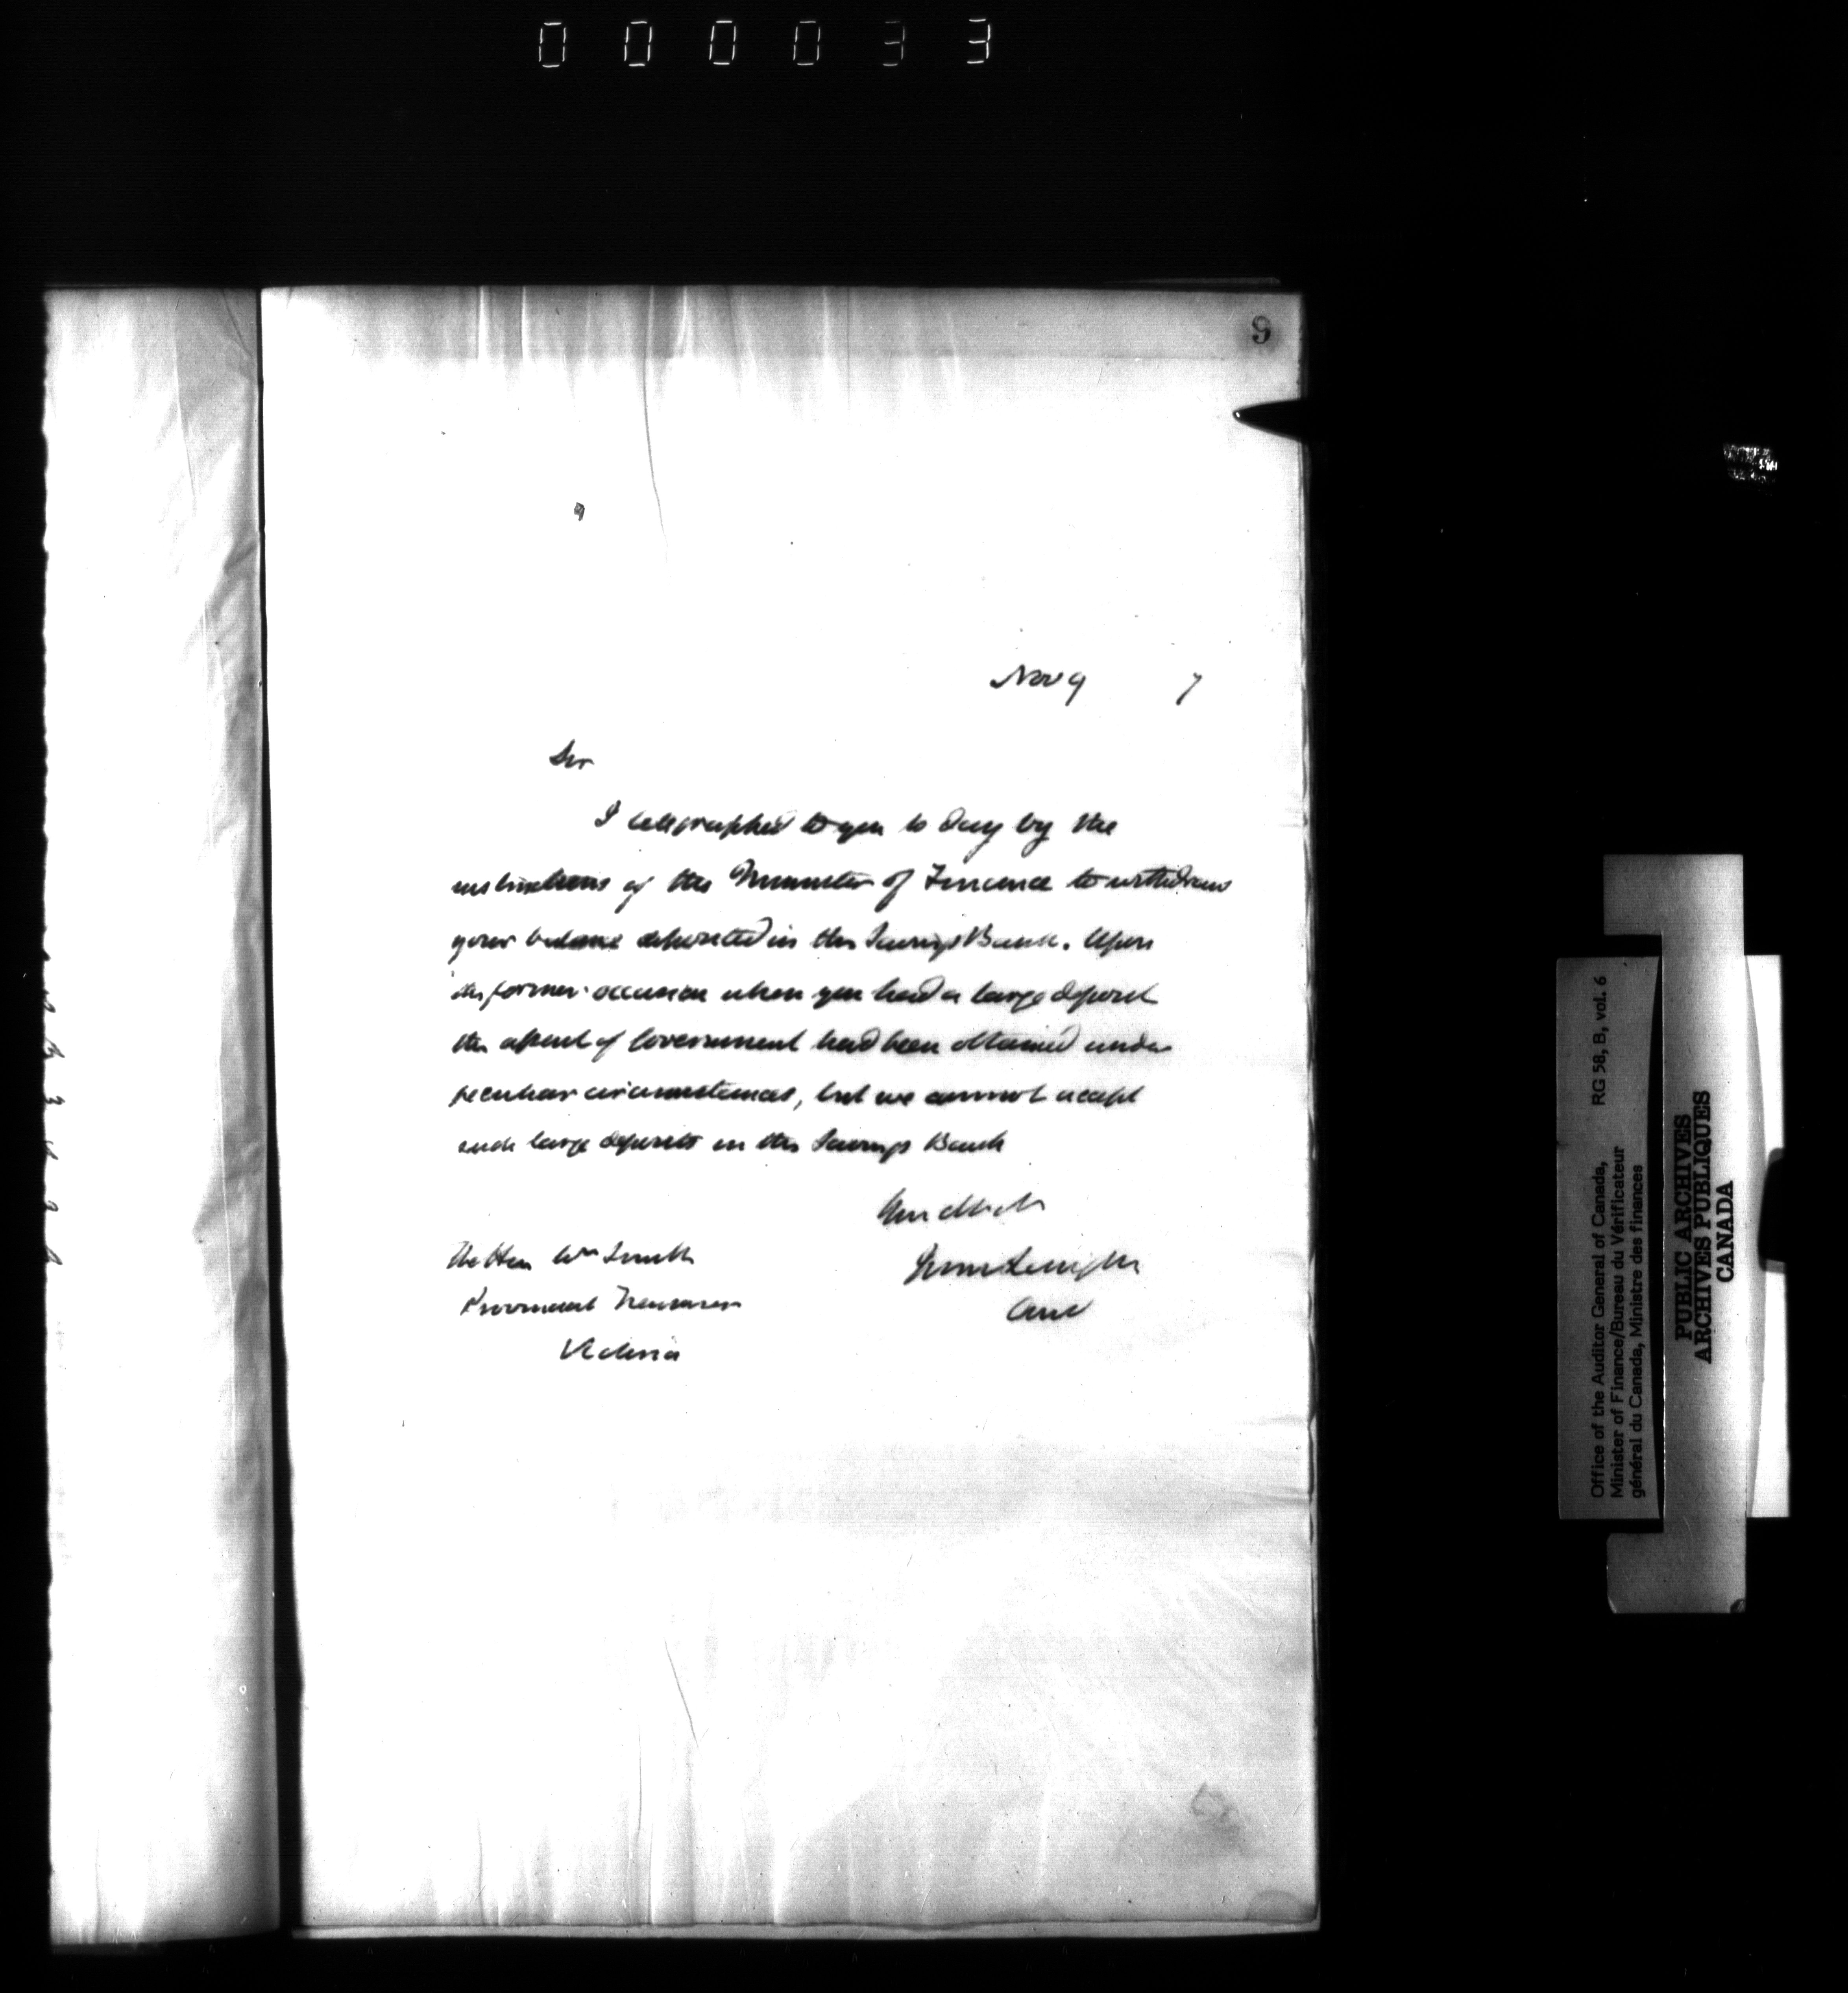 000033
9
Nov 9 7
Sir
I telegraphed to you to day by the
instructions of the Minister of Finance to withdraw
your balance deposited in the Savings Bank. Upon
the former occasion when you had a large deposit
the assent of Government had been obtained under
peculiar circumstances, but we cannot accept
such large deposits in the Savings Bank
The Hon Wm Smith
Provincial Treasurer
Victoria
Office of the Auditor General of Canada, RG 58, B, vol. 6
Minister of Finance/Bureau du Vérificateur
général du Canada, Ministre des finances
PUBLIC ARCHIVES
ARCHIVES PUBLIQUES
CANADA